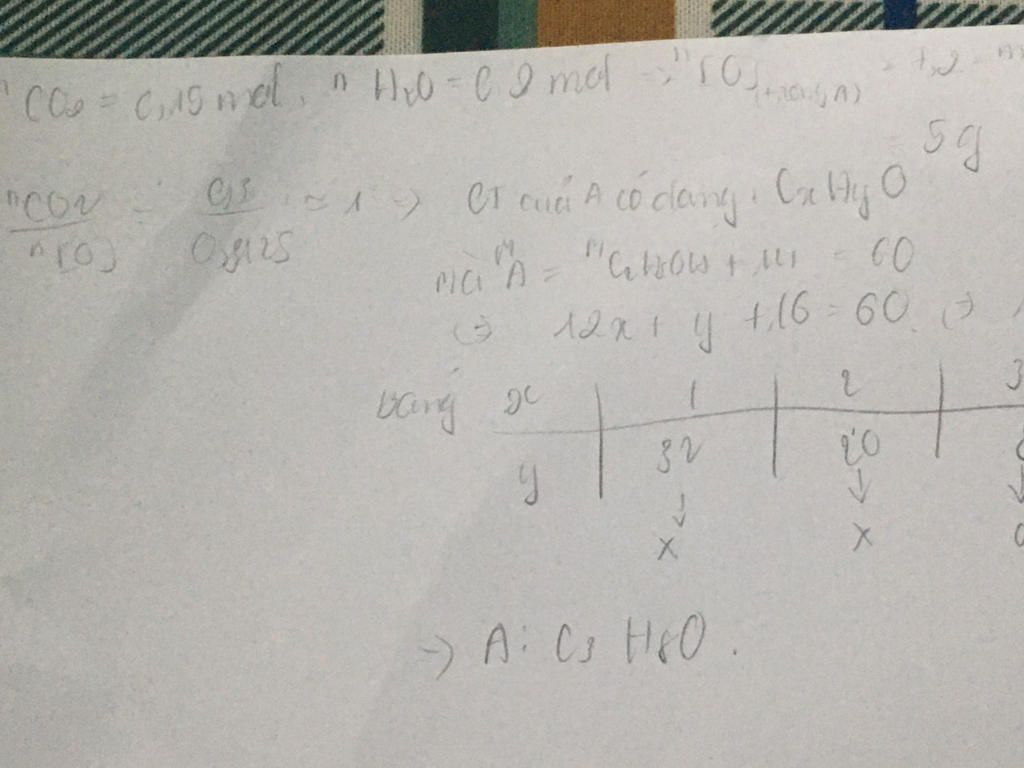 nCO2 = 0,15 mol, nH2O = 0,2 mol => n[O] (trong A) = 7,2 -
5g
nCO2 / n[O] = 0,15 / ≈ 1 => CT của A có dạng: CxHyO
mà MA = = 60
<=> 12x + y + 16 = 60 <=>
bảng x | 1 | 2 | 3
y | 32 | 20
↓ ↓ ↓
x x
=> A: C3H8O.